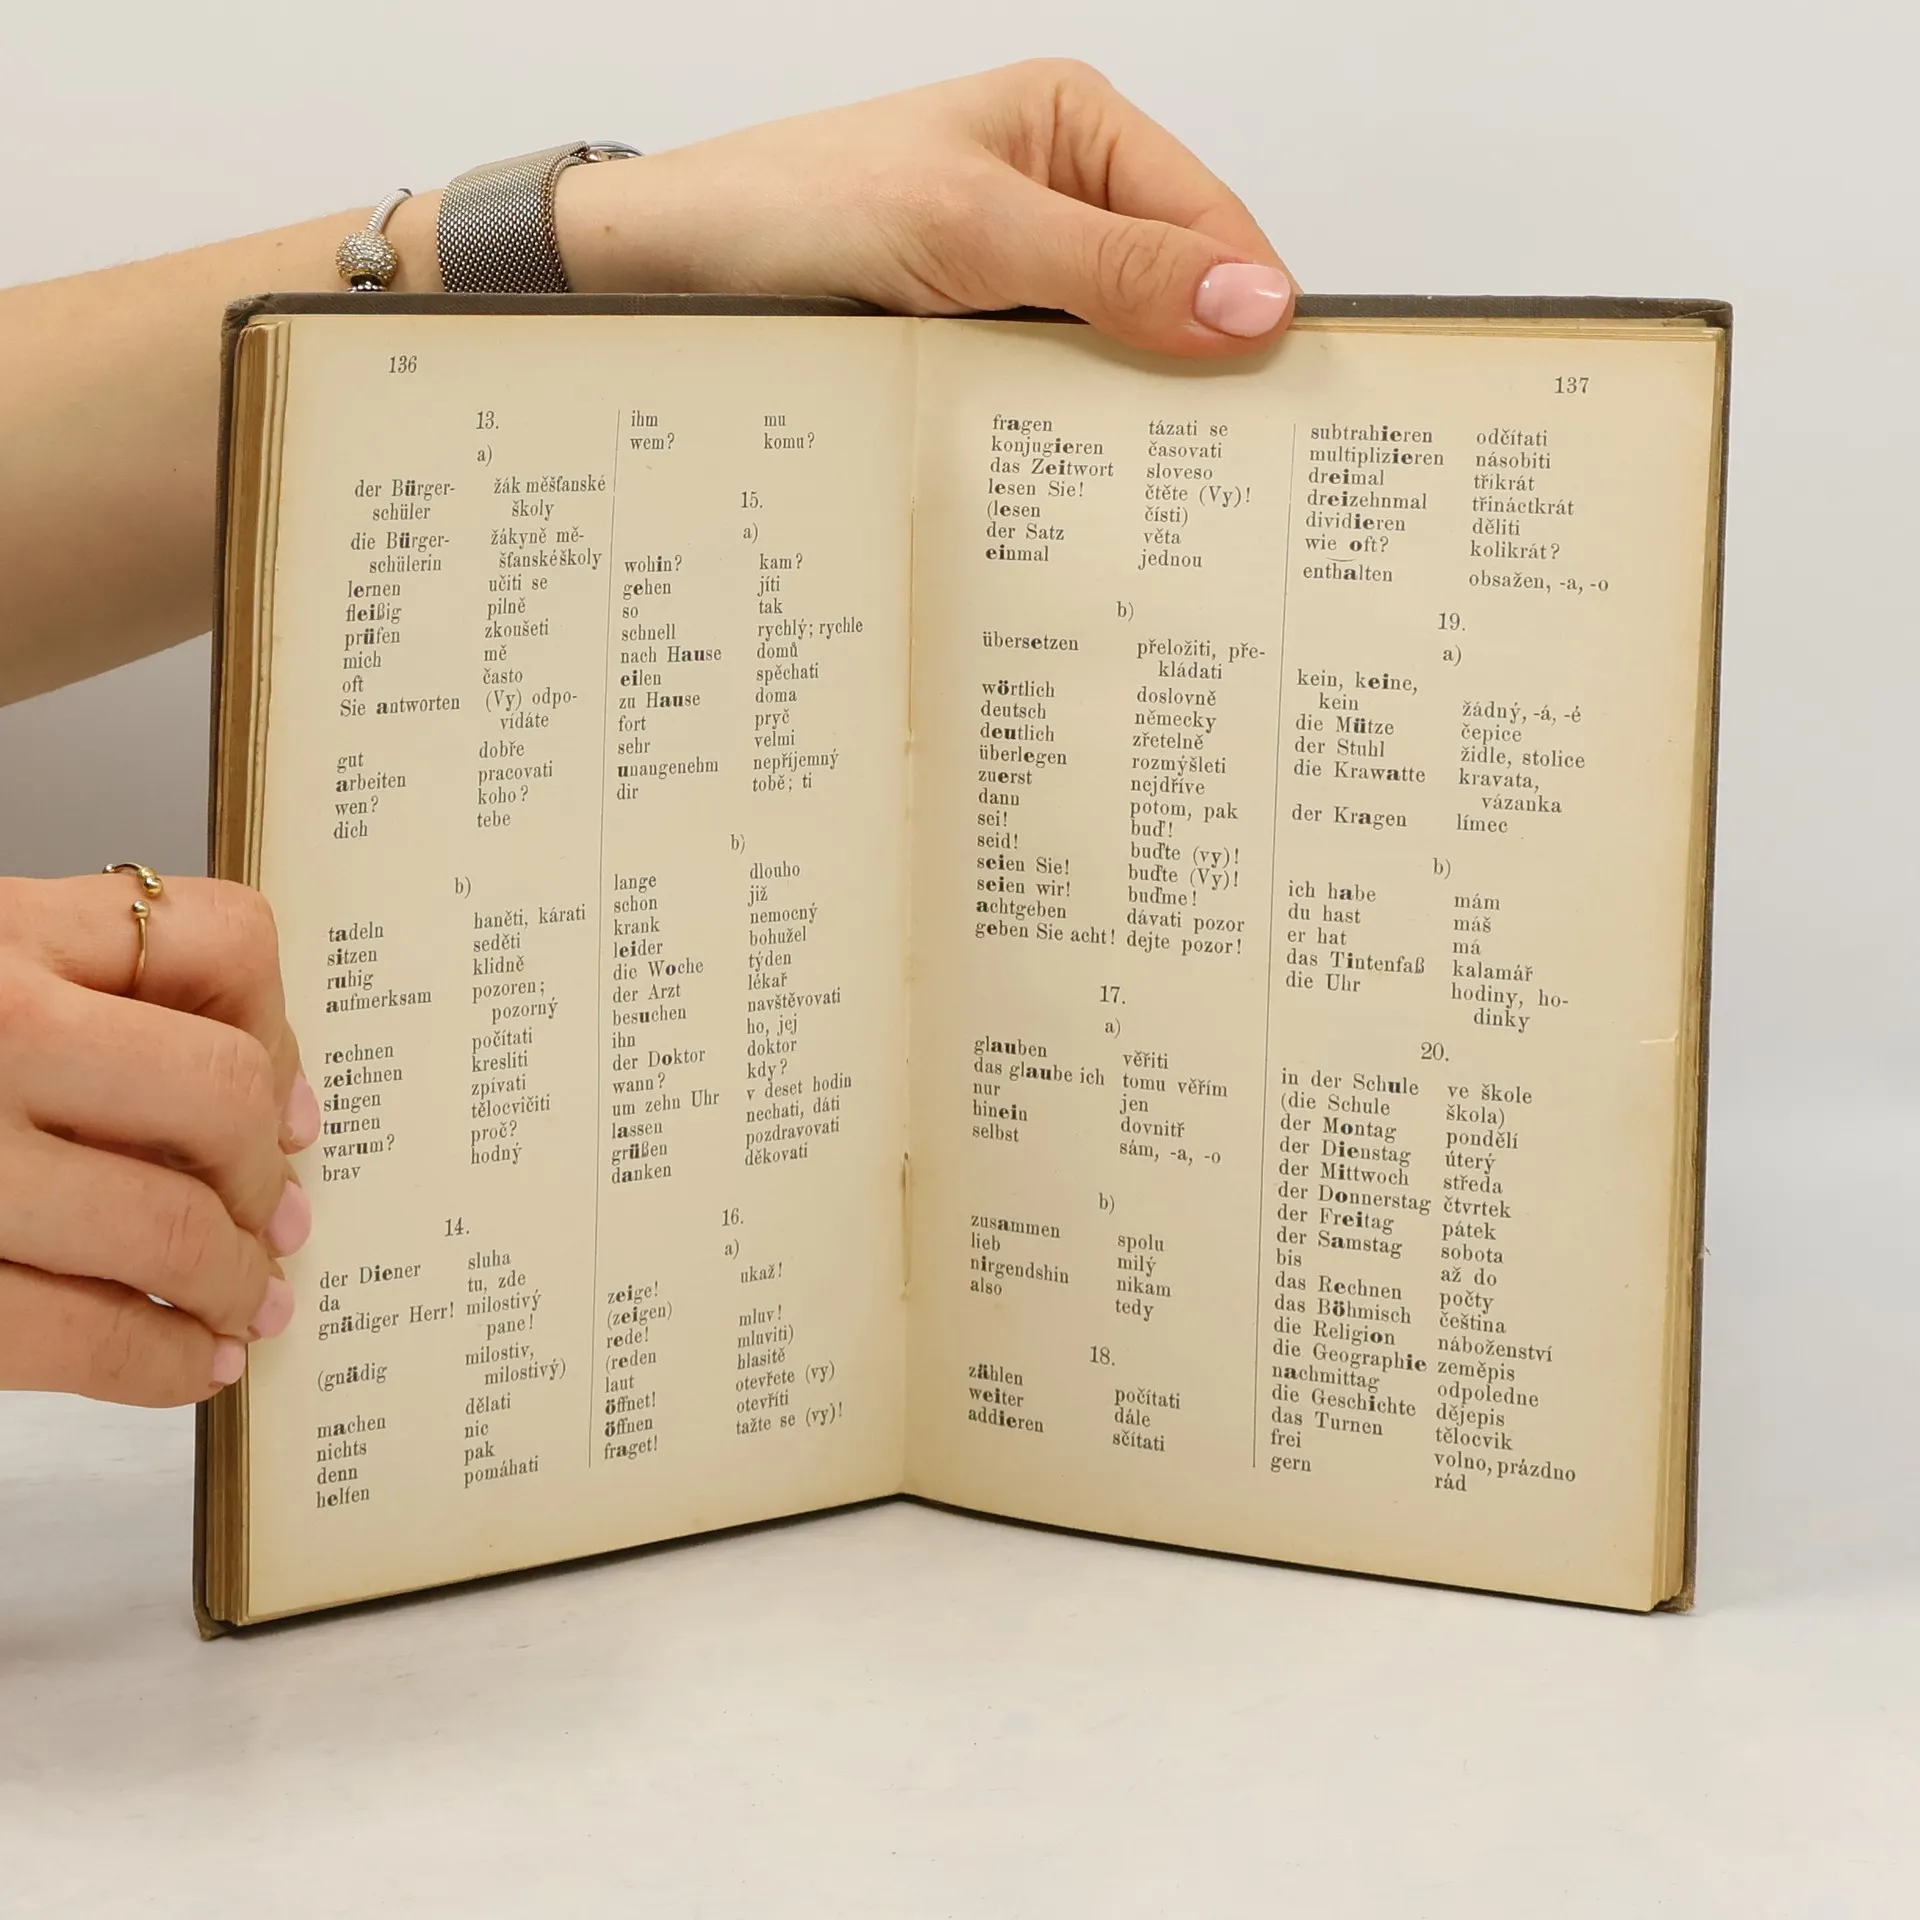 136
13.
a)
der Bürger- žák měšťanské
schüler školy
die Bürger- žákyně mě-
schülerin šťanské školy
lernen učiti se
fleißig pilně
prüfen zkoušeti
mich mě
oft často
Sie antworten (Vy) odpo-
vídáte
gut dobře
arbeiten pracovati
wen? koho?
dich tebe
b)
tadeln haněti, kárati
sitzen seděti
ruhig klidně
aufmerksam pozoren;
pozorný
rechnen počítati
zeichnen kresliti
singen zpívati
turnen tělocvičiti
warum? proč?
brav hodný
14.
der Diener sluha
da tu, zde
gnädiger Herr! milostivý
pane!
(gnädig milostiv,
milostivý)
machen dělati
nichts nic
denn pak
helfen pomáhati
ihm mu
wem? komu?
15.
a)
wohin? kam?
gehen jíti
so tak
schnell rychlý; rychle
nach Hause domů
eilen spěchati
zu Hause doma
fort pryč
sehr velmi
unangenehm nepříjemný
dir tobě; ti
b)
lange dlouho
schon již
krank nemocný
leider bohužel
die Woche týden
der Arzt lékař
besuchen navštěvovati
ihn ho, jej
der Doktor doktor
wann? kdy?
um zehn Uhr v deset hodin
lassen nechati, dáti
grüßen pozdravovati
danken děkovati
16.
a)
zeige! ukaž!
(zeigen)
rede! mluv!
(reden mluviti)
laut hlasitě
öffnet! otevřete (vy)
öffnen otevříti
fraget! tažte se (vy)!
137
fragen tázati se
konjugieren časovati
das Zeitwort sloveso
lesen Sie! čtěte (Vy)!
(lesen čísti)
der Satz věta
einmal jednou
b)
übersetzen přeložiti, pře-
kládati
wörtlich doslovně
deutsch německy
deutlich zřetelně
überlegen rozmýšleti
zuerst nejdříve
dann potom, pak
sei! buď!
seid! buďte (vy)!
seien Sie! buďte (Vy)!
seien wir! buďme!
achtgeben dávati pozor
geben Sie acht! dejte pozor!
17.
a)
glauben věřiti
das glaube ich tomu věřím
nur jen
hinein dovnitř
selbst sám, -a, -o
b)
zusammen spolu
lieb milý
nirgendshin nikam
also tedy
18.
zählen počítati
weiter dále
addieren sčítati
subtrahieren odčítati
multiplizieren násobiti
dreimal třikrát
dreizehnmal třináctkrát
dividieren děliti
wie oft? kolikrát?
enthalten obsažen, -a, -o
19.
a)
kein, keine,
kein žádný, -á, -é
die Mütze čepice
der Stuhl židle, stolice
die Krawatte kravata,
vázanka
der Kragen límec
b)
ich habe mám
du hast máš
er hat má
das Tintenfaß kalamář
die Uhr hodiny, ho-
dinky
20.
in der Schule ve škole
(die Schule škola)
der Montag pondělí
der Dienstag úterý
der Mittwoch středa
der Donnerstag čtvrtek
der Freitag pátek
der Samstag sobota
bis až do
das Rechnen počty
das Böhmisch čeština
die Religion náboženství
die Geographie zeměpis
nachmittag odpoledne
die Geschichte dějepis
das Turnen tělocvik
frei volno, prázdno
gern rád